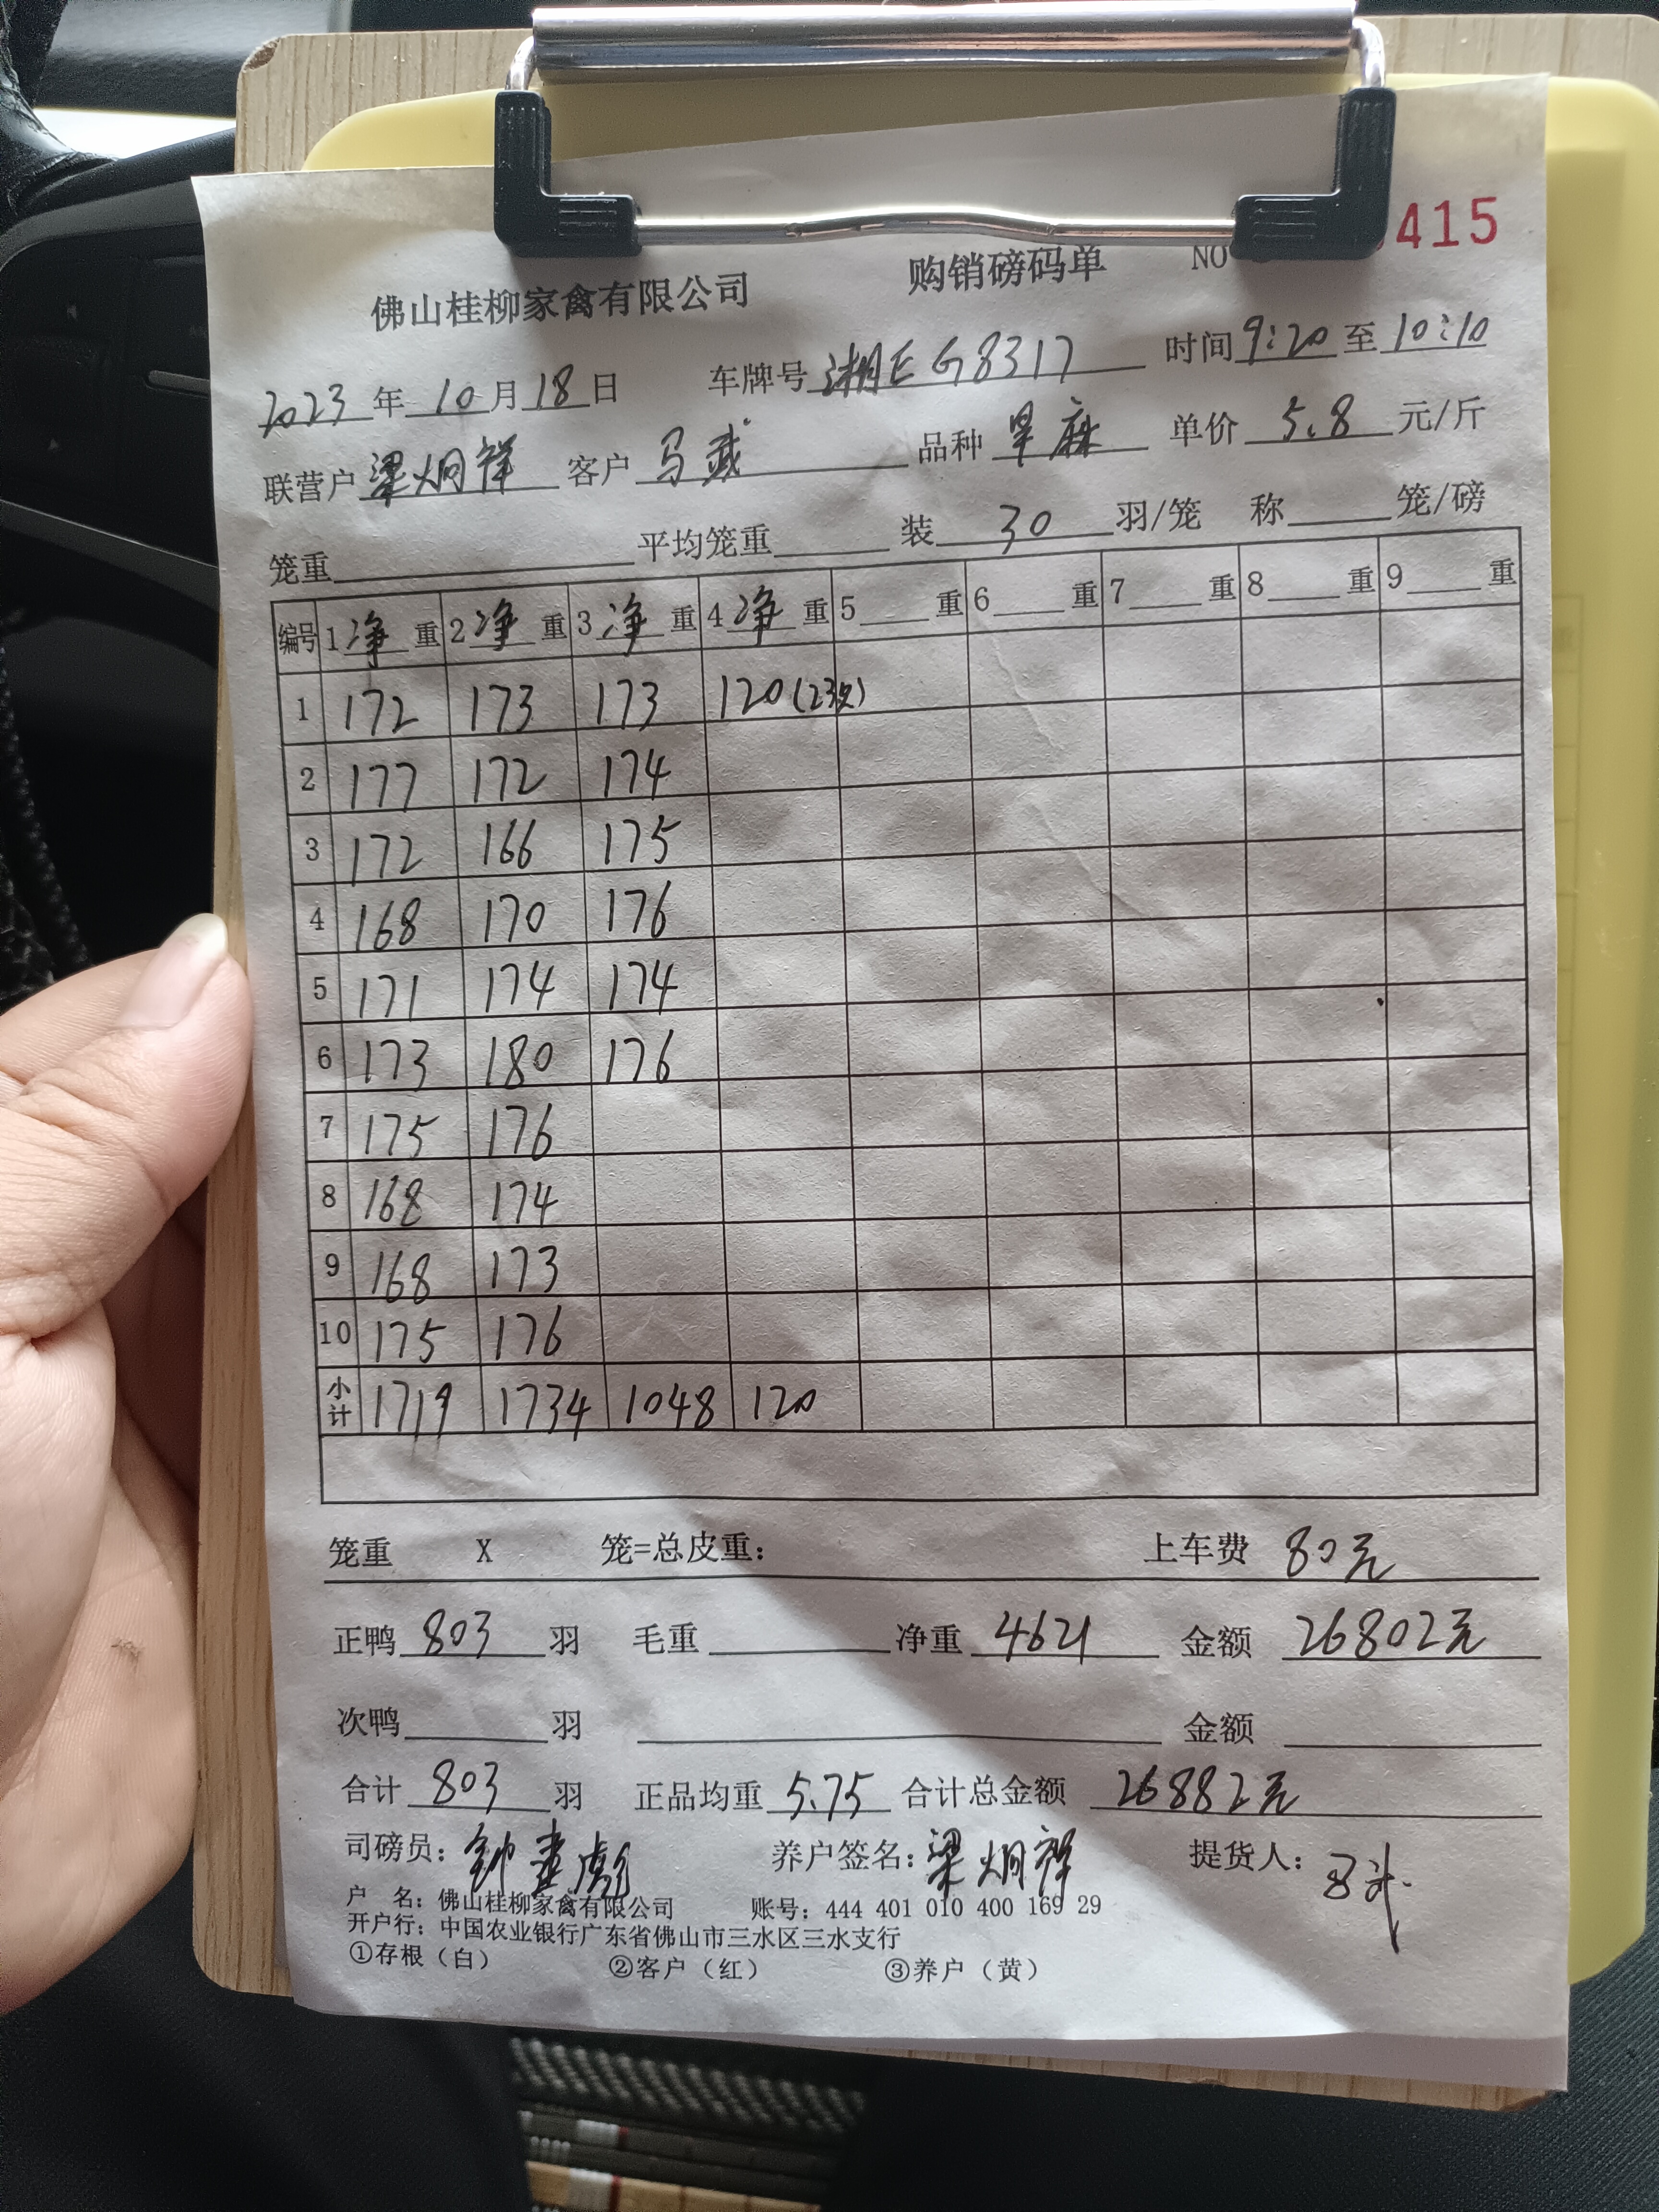 购销磅码单 NO 415
佛山桂柳家禽有限公司
2023年10月18日 车牌号 湘EG8317 时间9:20至10:10
联营户 梁炯祥 客户 马 品种 旱麻 单价 5.8 元/斤
笼重 平均笼重 装 30 羽/笼 称 笼/磅
编号 1净重 2净重 3净重 4净重 5 重 6 重 7 重 8 重 9 重
1 172 173 173 120(23只)
2 177 172 174
3 172 166 175
4 168 170 176
5 171 174 174
6 173 180 176
7 175 176
8 168 174
9 168 173
10 175 176
小计 1719 1734 1048 120
笼重 X 笼=总皮重: 上车费 80元
正鸭 803 羽 毛重 净重 4621 金额 26802元
次鸭 羽 金额
合计 803 羽 正品均重 5.75 合计总金额 26882元
司磅员: 钟 彪 养户签名: 梁炯祥 提货人:
户 名: 佛山桂柳家禽有限公司 账号: 444 401 010 400 169 29
开户行: 中国农业银行广东省佛山市三水区三水支行
①存根(白) ②客户(红) ③养户(黄)